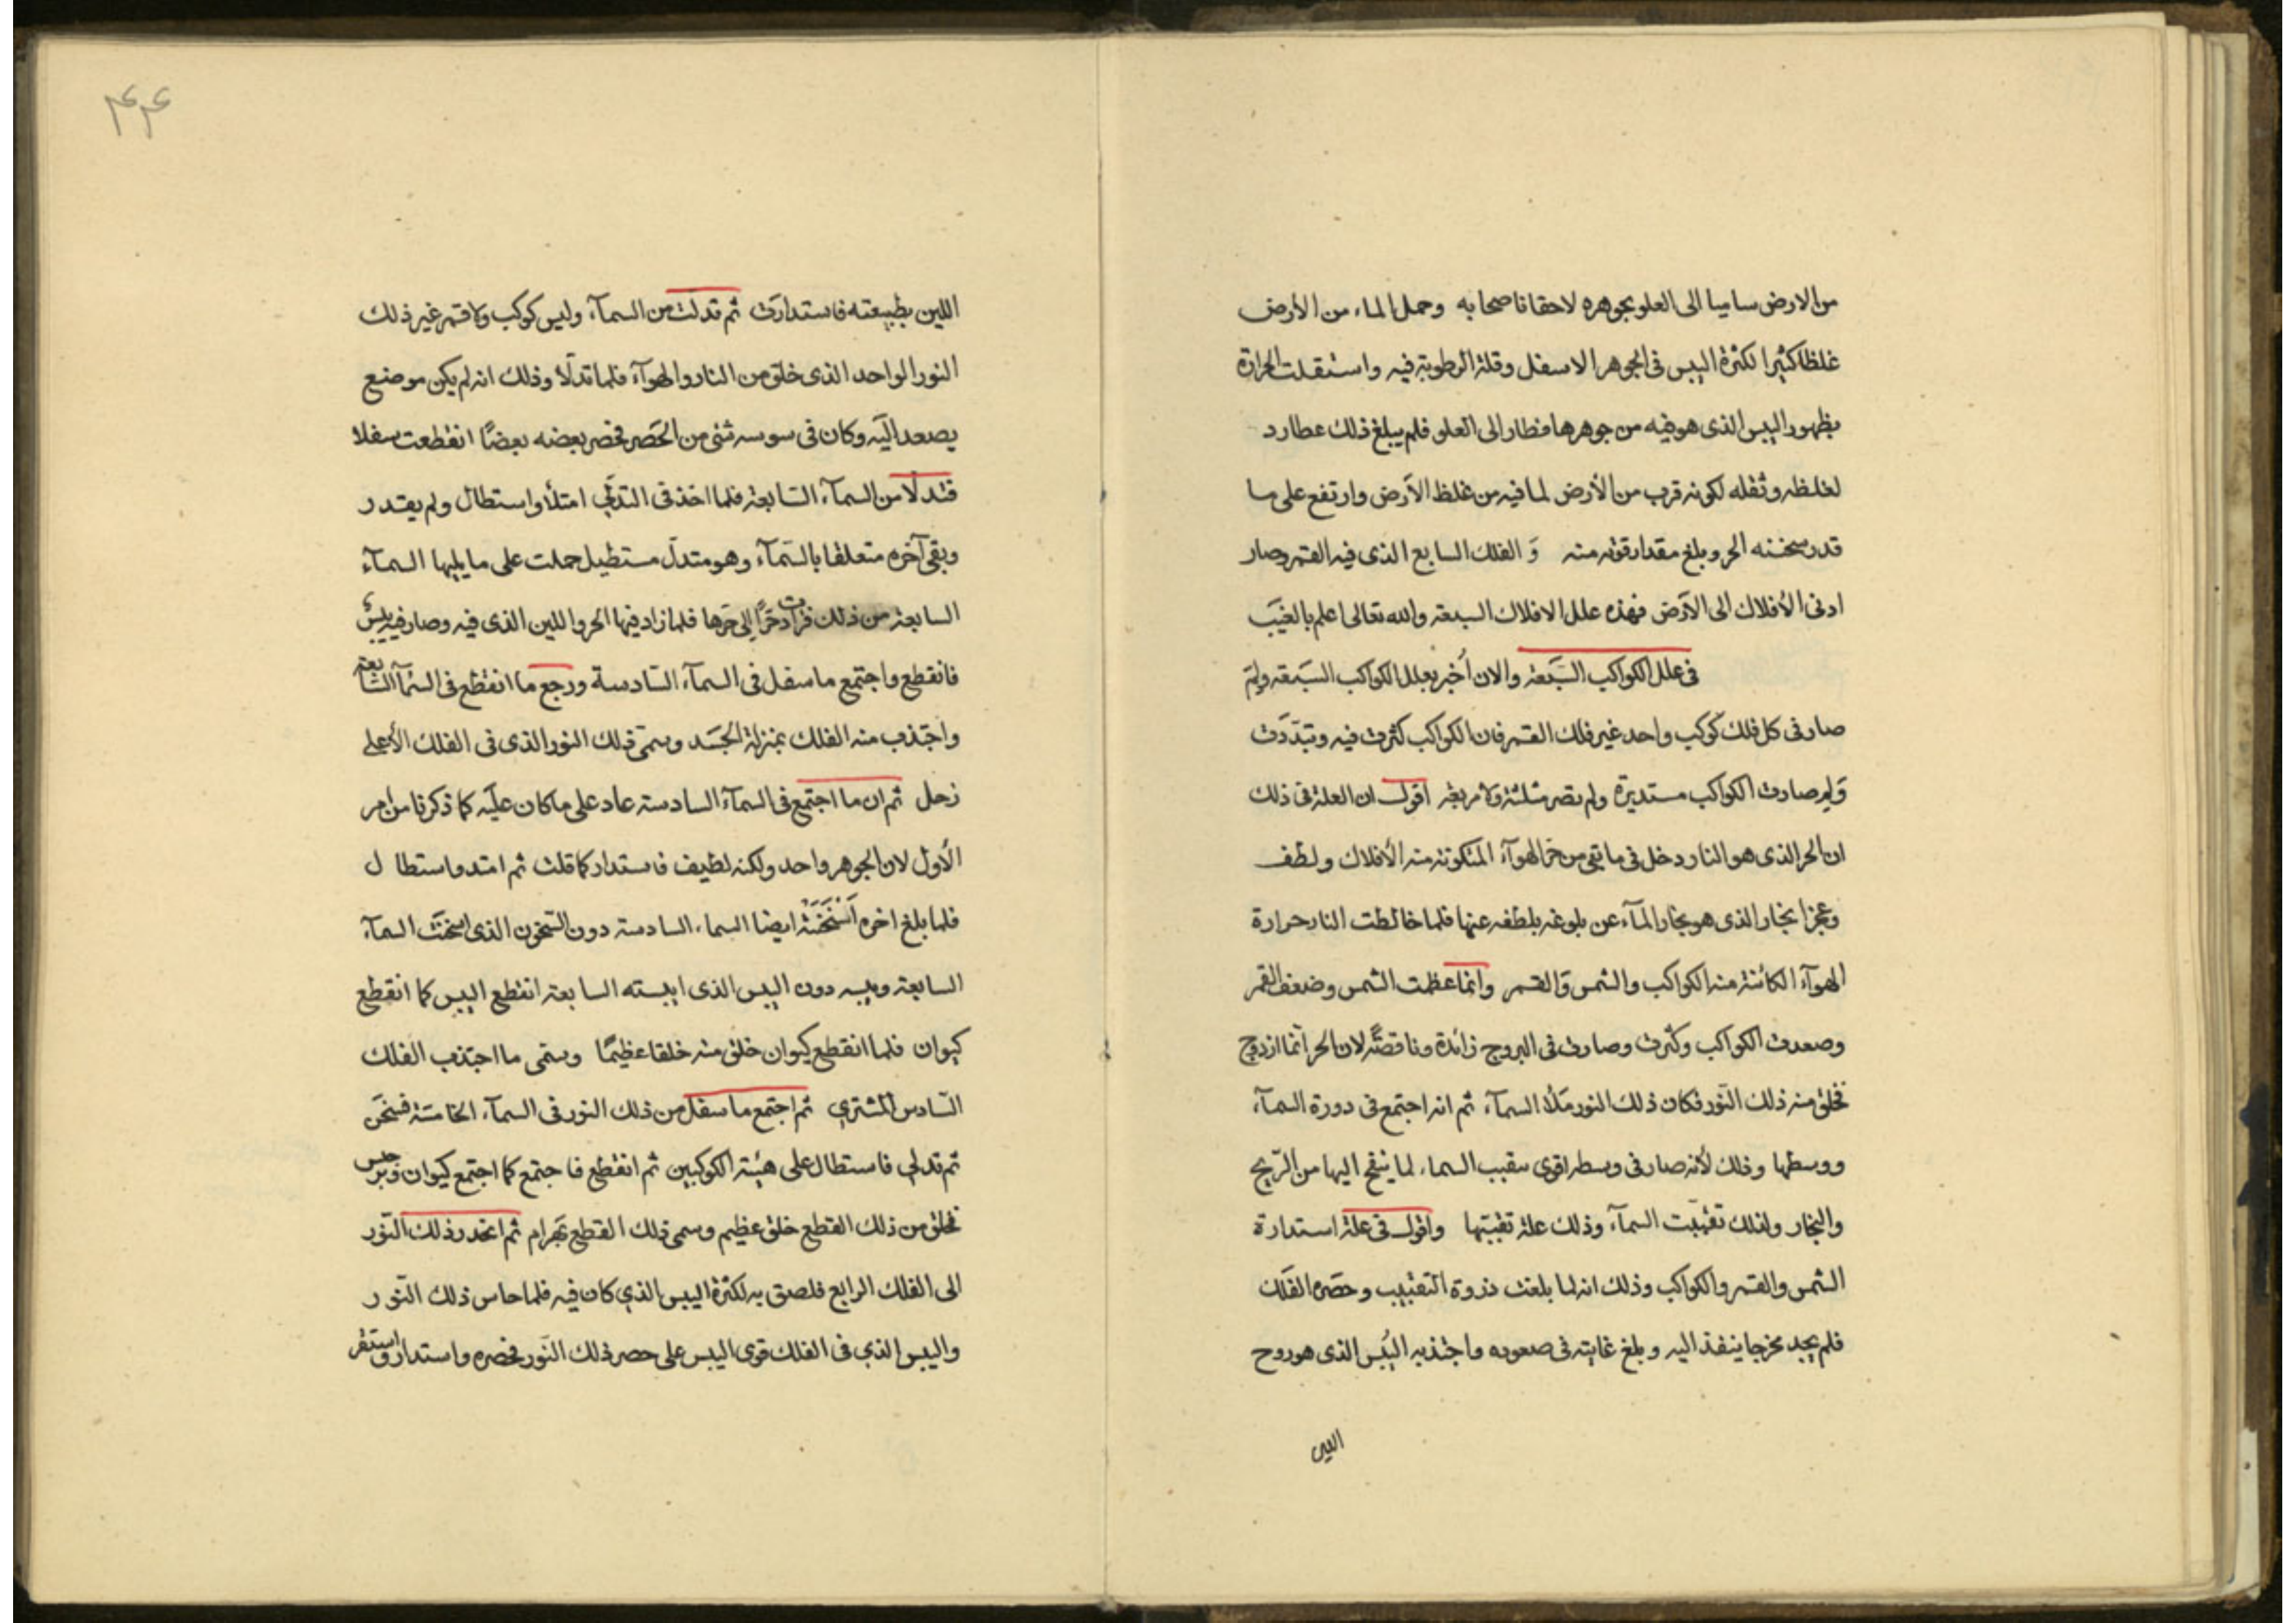 من الارض ساميا الى العلو بجوهره لاحقا ناصحا به وحمل الماء من الأرض
غلظا كثيرا لكثرة اليبس فى الجوهر الاسفل وقلة الرطوبة فيه واستقلت الحرارة
بظهور اليبس الذى هو فيه من جوهرها فطار الى العلو فلم يبلغ ذلك عطارد
لغلظه وثقله لكونه قرب من الأرض لما فيه من غلظ الأرض وارتفع على ما
قدر سخنه الحر وبلغ مقدار قوته منه وَ الفلك السابع الذى فيه القمر وصار
ادنى الأفلاك الى الأرض فهذه علل الافلاك السبعة والله تعالى اعلم بالغيَب
فى علل الكواكب السَبعة والان أخبر بعلل الكواكب السَبعة ولِمَ
صار فى كل فلك كوكب واحد غير فلك القمر فان الكواكب كثرت فيه وتبدّدَت
وَلِم صارت الكواكب مستديرة ولم تصر مثلثة ولا مربعة اقول ان العلة فى ذلك
ان الحر الذى هو النار دخل فى ما بقى من حر الهوآء المتكونة منه الأفلاك ولطف
وعجز ا بخار الذى هو بخار المآء عن بلوغه بلطفه عنها فلما خالطت النار حرارة
الهوآء الكائنة منه الكواكب والشمس وَالقمر وانما عظمت الشمس وضعف القمر
وصعدت الكواكب وكثرت وصارت فى البروج زائدة وناقصة لان الحر انما ازدوج
فخلق منه ذلك النّور فكان ذلك النور ملأ السمآء ثم انه اجتمع فى دورة السمآء
ووسطها وذلك لأنه صار فى وسطه اقوى سقبب السماء لما ينفخ اليها من الرّيح
والبخار ولذلك تقببّت السمآء وذلك علة تقببها واقول فى علة استدارة
الشمس والقمر والكواكب وذلك انه لما بلغت ذروة التقبيب وحصَره الفَلك
فلم يجد مخرجا ينفذ اليه وبلغ غايته فى صعوده واجتذبه اليُبس الذى هو روح
اللين
۴۴
اللين بطبيعته فاستدارَت ثم تدلت من السمآء وليس كوكب ولا قمر غير ذلك
النور الواحد الذى خلق من النار والهوآء فلما تدلّا وذلك انه لم يكن موضع
يصعد اليَه وكان فى سوسه شئ من الحَصر فحصر بعضه بعضًا انقطعت سفلا
فتدلّا من السمآء السّابعة فلما اخذ فى التدلّى امتلأ واستطال ولم يقدر
وبقى آخره متعلقا بالسّمآء وهو متدلّ مستطيل حملت على ما يليها السمآء
السابعة من ذلك فزادت حَرًّا الى حَرها فلما زاد فيها الحر واللين الذى فيه وصار فيه يبسٌ
فانقطع واجتمع ما سفل فى السمآء السّادسة ورجع ما انقطع فى السّمآء السّابعة
واجتذب منه الفلك بمنزلة الجَسَد وسمى ذلك النور الذى فى الفلك الأعلى
زحل ثم ان ما اجتمع فى السمآء السادسة عاد على ما كان عليَه كما ذكرنا من امر
الأول لان الجوهر واحد ولكنه لطيف فاستدار كما قلت ثم امتد واستطا ل
فلما بلغ اخره اَسْخَنَتْه ايضا السماء السادسة دون التسخّون الذى اسخَنَت السمآء
السابعة ويبسه دون اليبس الذى ايبسته السابعة انقطع اليبس كما انقطع
كيوان فلما انقطع كيوان خلق منه خلقا عظيمًا وسمى ما اجتذب الفلك
السّادس المشتري ثم اجتمع ما سفل من ذلك النور فى السمآء الخامسَة فسَخَن
ثم تدلى فاستطال على هيئة الكوكبين ثم انقطع فاجتمع كما اجتمع كيوان وَبرجيس
فخلق من ذلك القطع خلق عظيم وسمى ذلك القطع بَهرام ثم انحدر ذلك النّور
الى الفلك الرابع فلصق به لكثرة اليبس الذي كان فيه فلما حاس ذلك النّور
واليبس الذي فى الفلك قوى اليبس على حصر ذلك النّور فحصره واستدار واستقر